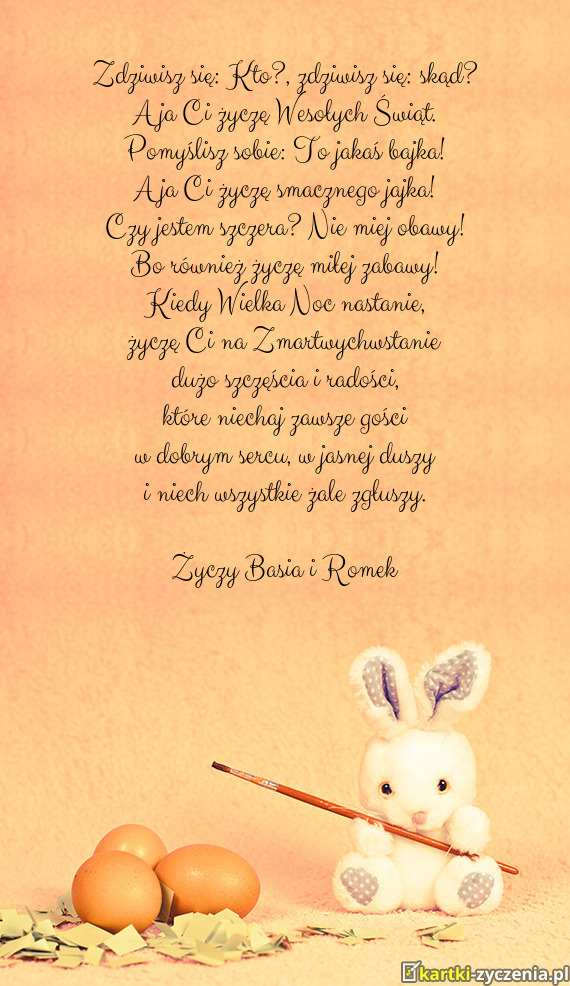 Zdziwisz się: Kto?, zdziwisz się: skąd?
A ja Ci życzę Wesołych Świąt.
Pomyślisz sobie: To jakaś bajka!
A ja Ci życzę smacznego jajka!
Czy jestem szczera? Nie miej obawy!
Bo również życzę miłej zabawy!
Kiedy Wielka Noc nastanie,
życzę Ci na Zmartwychwstanie
dużo szczęścia i radości,
które niechaj zawsze gości
w dobrym sercu, w jasnej duszy
i niech wszystkie żale zgłuszy.
Życzy Basia i Romek
kartki-zyczenia.pl